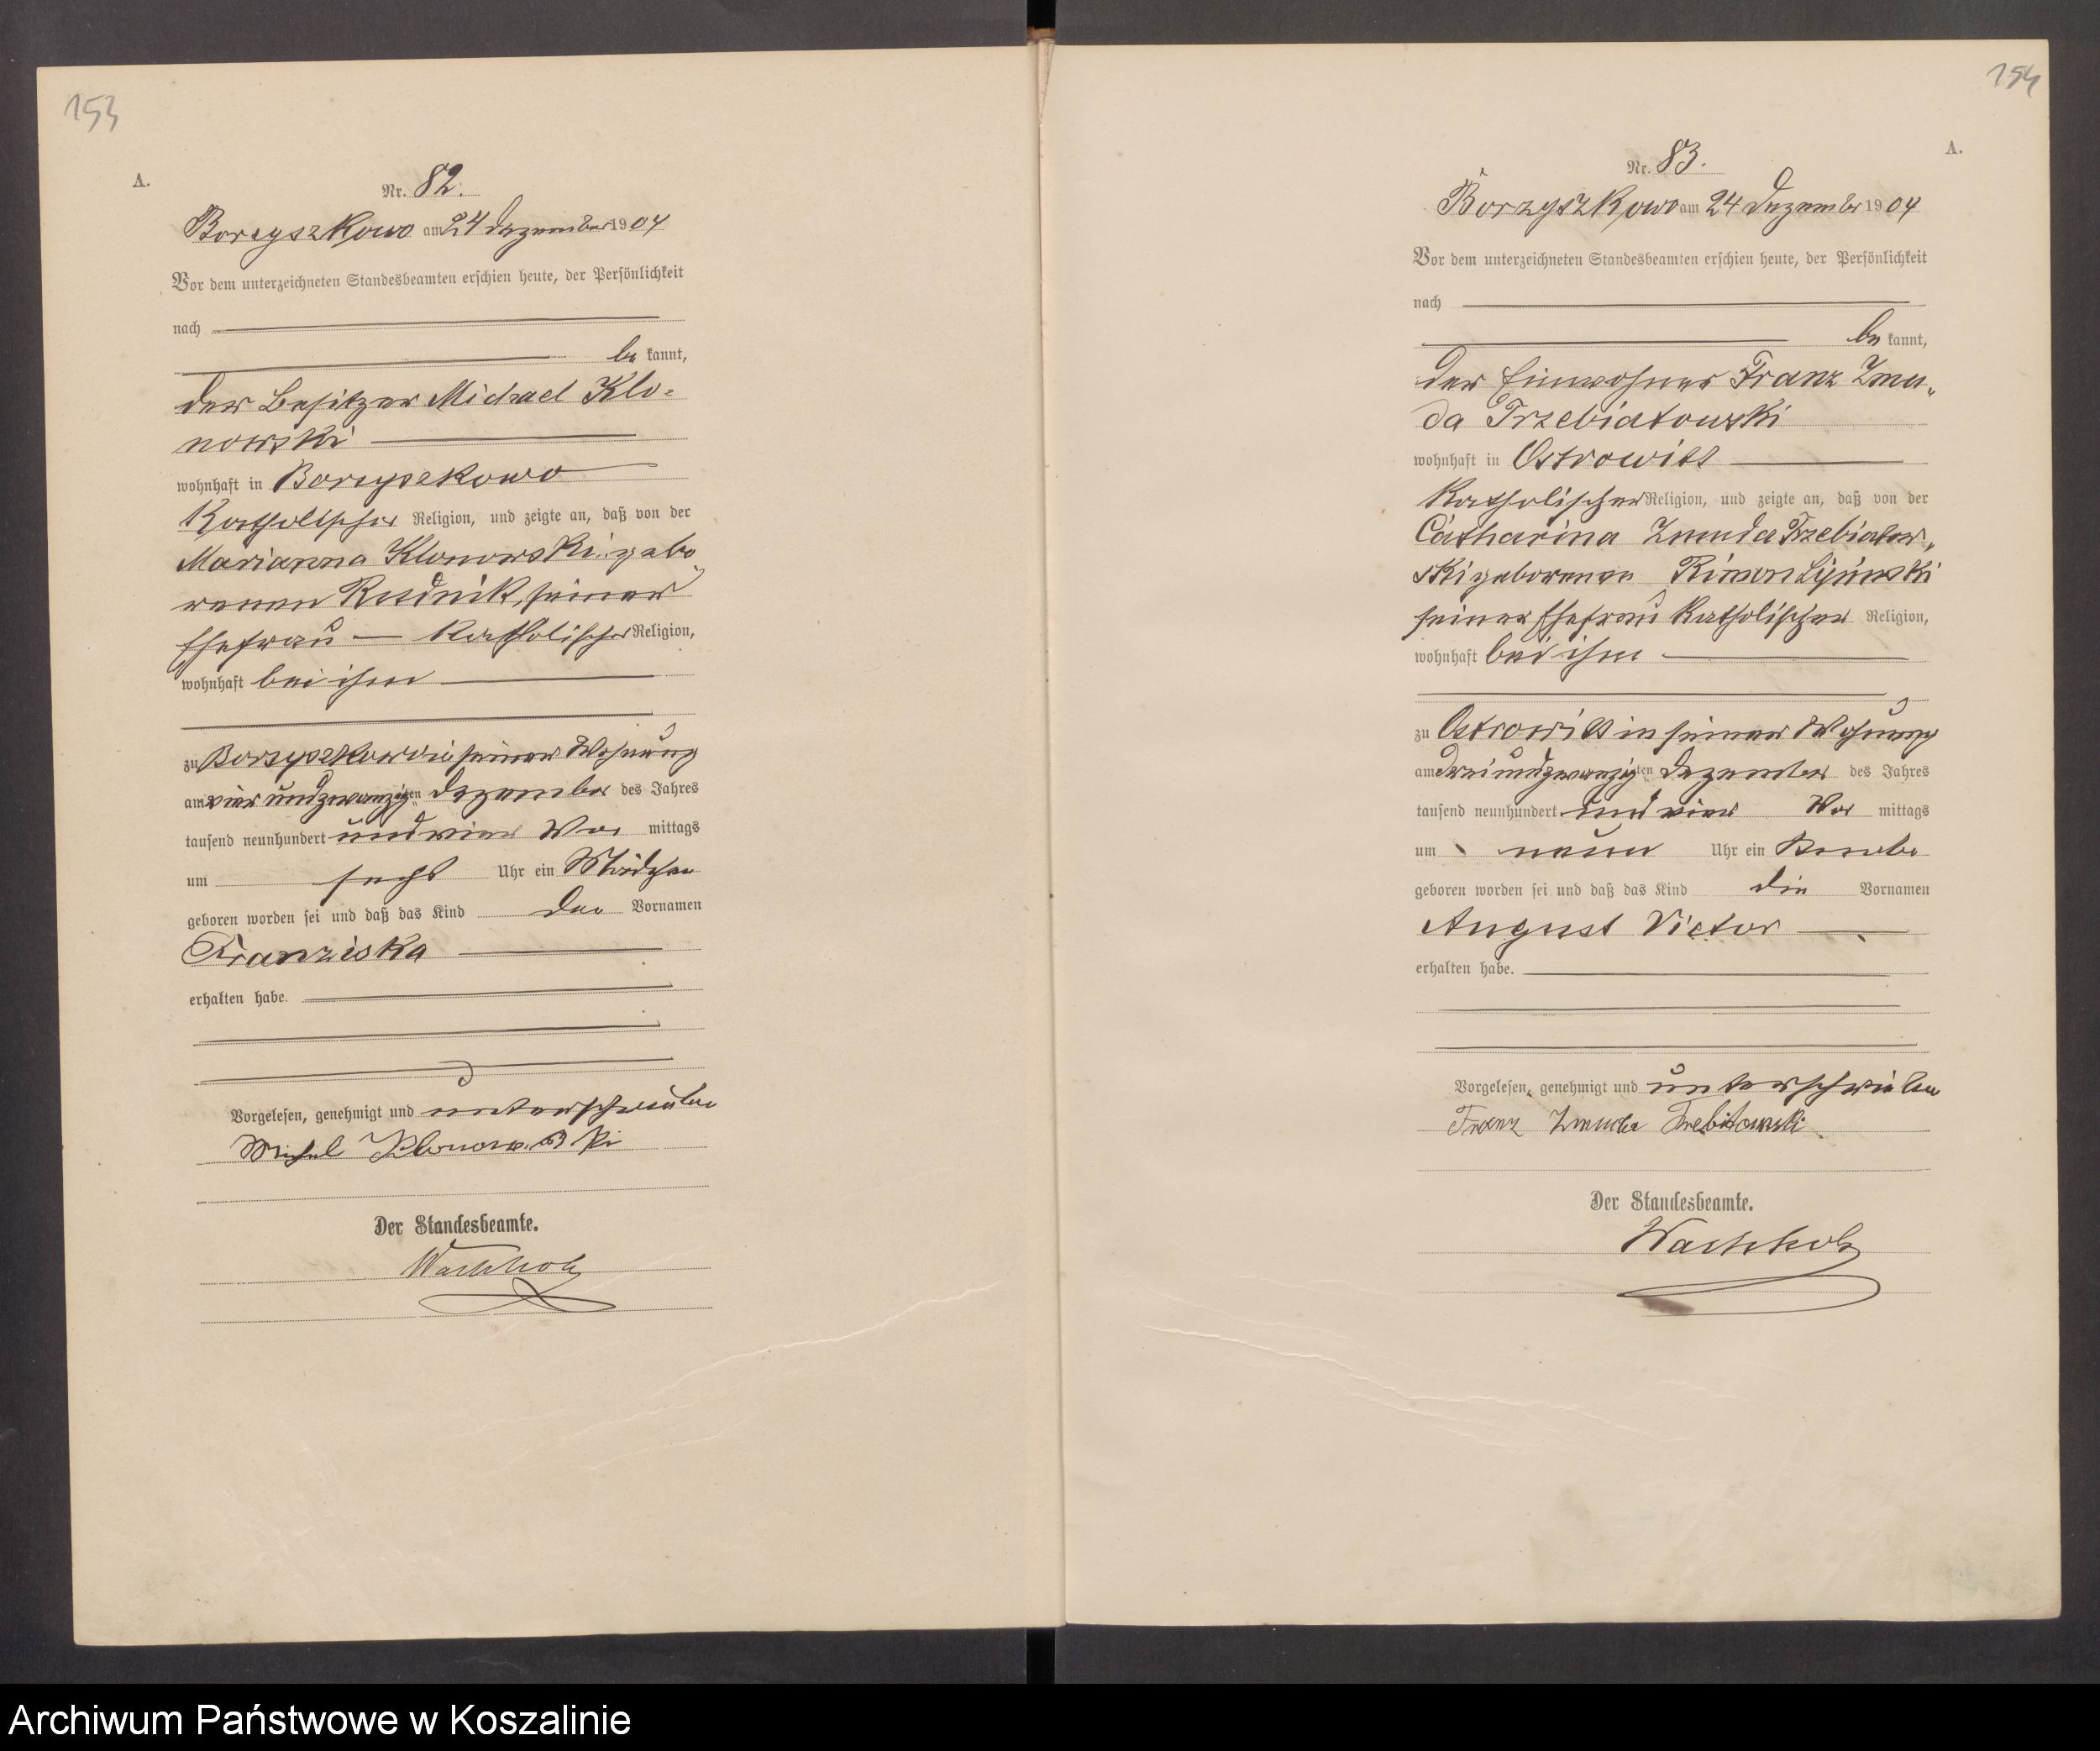 153
A.
Nr. 82.
Borzyszkowo am 24 Dezember 1904
Vor dem unterzeichneten Standesbeamten erschien heute, der Persönlichkeit
nach
be kannt,
der Besitzer Michael Klo-
nowski
wohnhaft in Borzyszkowo
Katholischer Religion, und zeigte an, daß von der
Marianna Klonowski gebo
renen Rudnik, seiner
Ehefrau – Katholischer Religion,
wohnhaft bei ihm
zu Borzyszkowo in seiner Wohnung
am vier und zwanzigsten Dezember des Jahres
tausend neunhundert und vier Vor mittags
um sechs Uhr ein Mädchen
geboren worden sei und daß das Kind den Vornamen
Franziska
erhalten habe.
Vorgelesen, genehmigt und unterschrieben
Michael Klonowski
Der Standesbeamte.
Wachholz
154
A.
Nr. 83.
Borzyszkowo am 24 Dezember 1904
Vor dem unterzeichneten Standesbeamten erschien heute, der Persönlichkeit
nach
be kannt,
der Einwohner Franz Zmu-
da Trzebiatowski
wohnhaft in Ostrowitt
Katholischer Religion, und zeigte an, daß von der
Catharina Zmuda Trzebiatow-
ski geborenen Lipinski
seiner Ehefrau Katholischer Religion,
wohnhaft bei ihm
zu Ostrowitt in seiner Wohnung
am drei und zwanzigsten Dezember des Jahres
tausend neunhundert und vier Vor mittags
um neun Uhr ein Knabe
geboren worden sei und daß das Kind die Vornamen
August Victor
erhalten habe.
Vorgelesen, genehmigt und unterschrieben
Franz Zmuda Trebitowski
Der Standesbeamte.
Wachholz
Archiwum Państwowe w Koszalinie